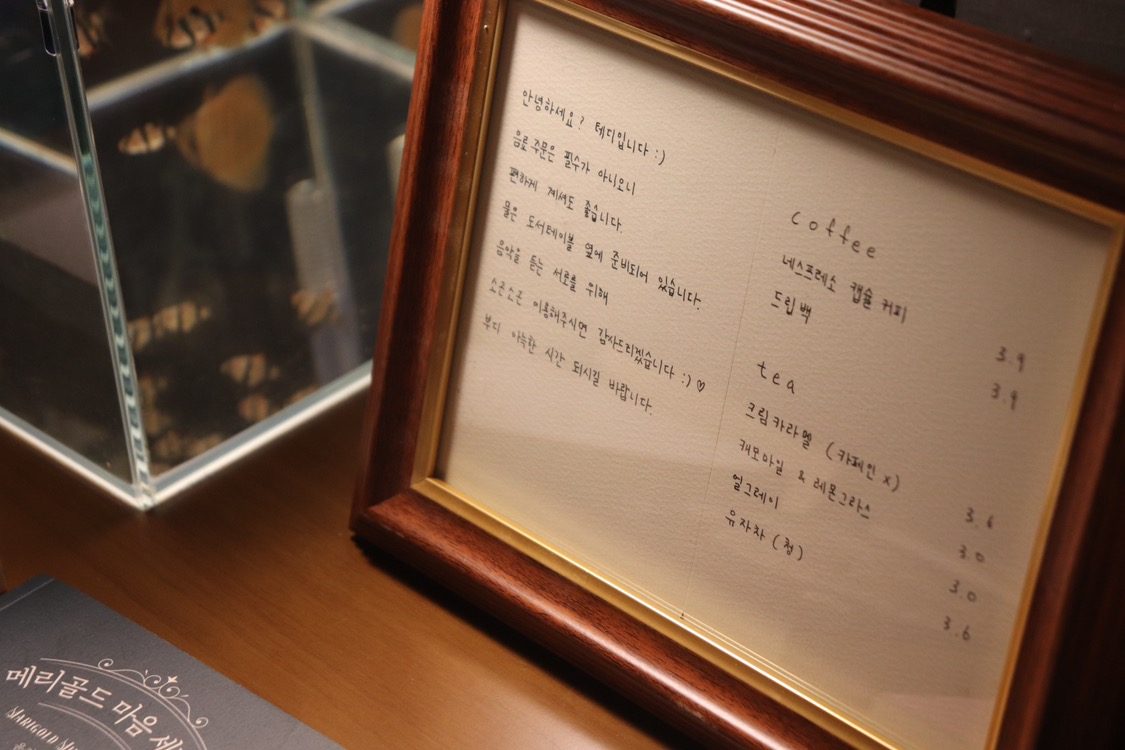 안녕하세요? 테디입니다 :)
음료 주문은 필수가 아니오니
편하게 계셔도 좋습니다.
물은 도서테이블 옆에 준비되어 있습니다.
음악을 듣는 서로를 위해
소곤소곤 이용해주시면 감사드리겠습니다 :) ♡
부디 아늑한 시간 되시길 바랍니다.
coffee
네스프레소 캡슐 커피 3.9
드립백 3.9
tea
크림카라멜 (카페인 x) 3.6
캐모마일 & 레몬그라스 3.0
얼그레이 3.0
유자차 (청) 3.6
메리골드 마음 세
MARIGOLD